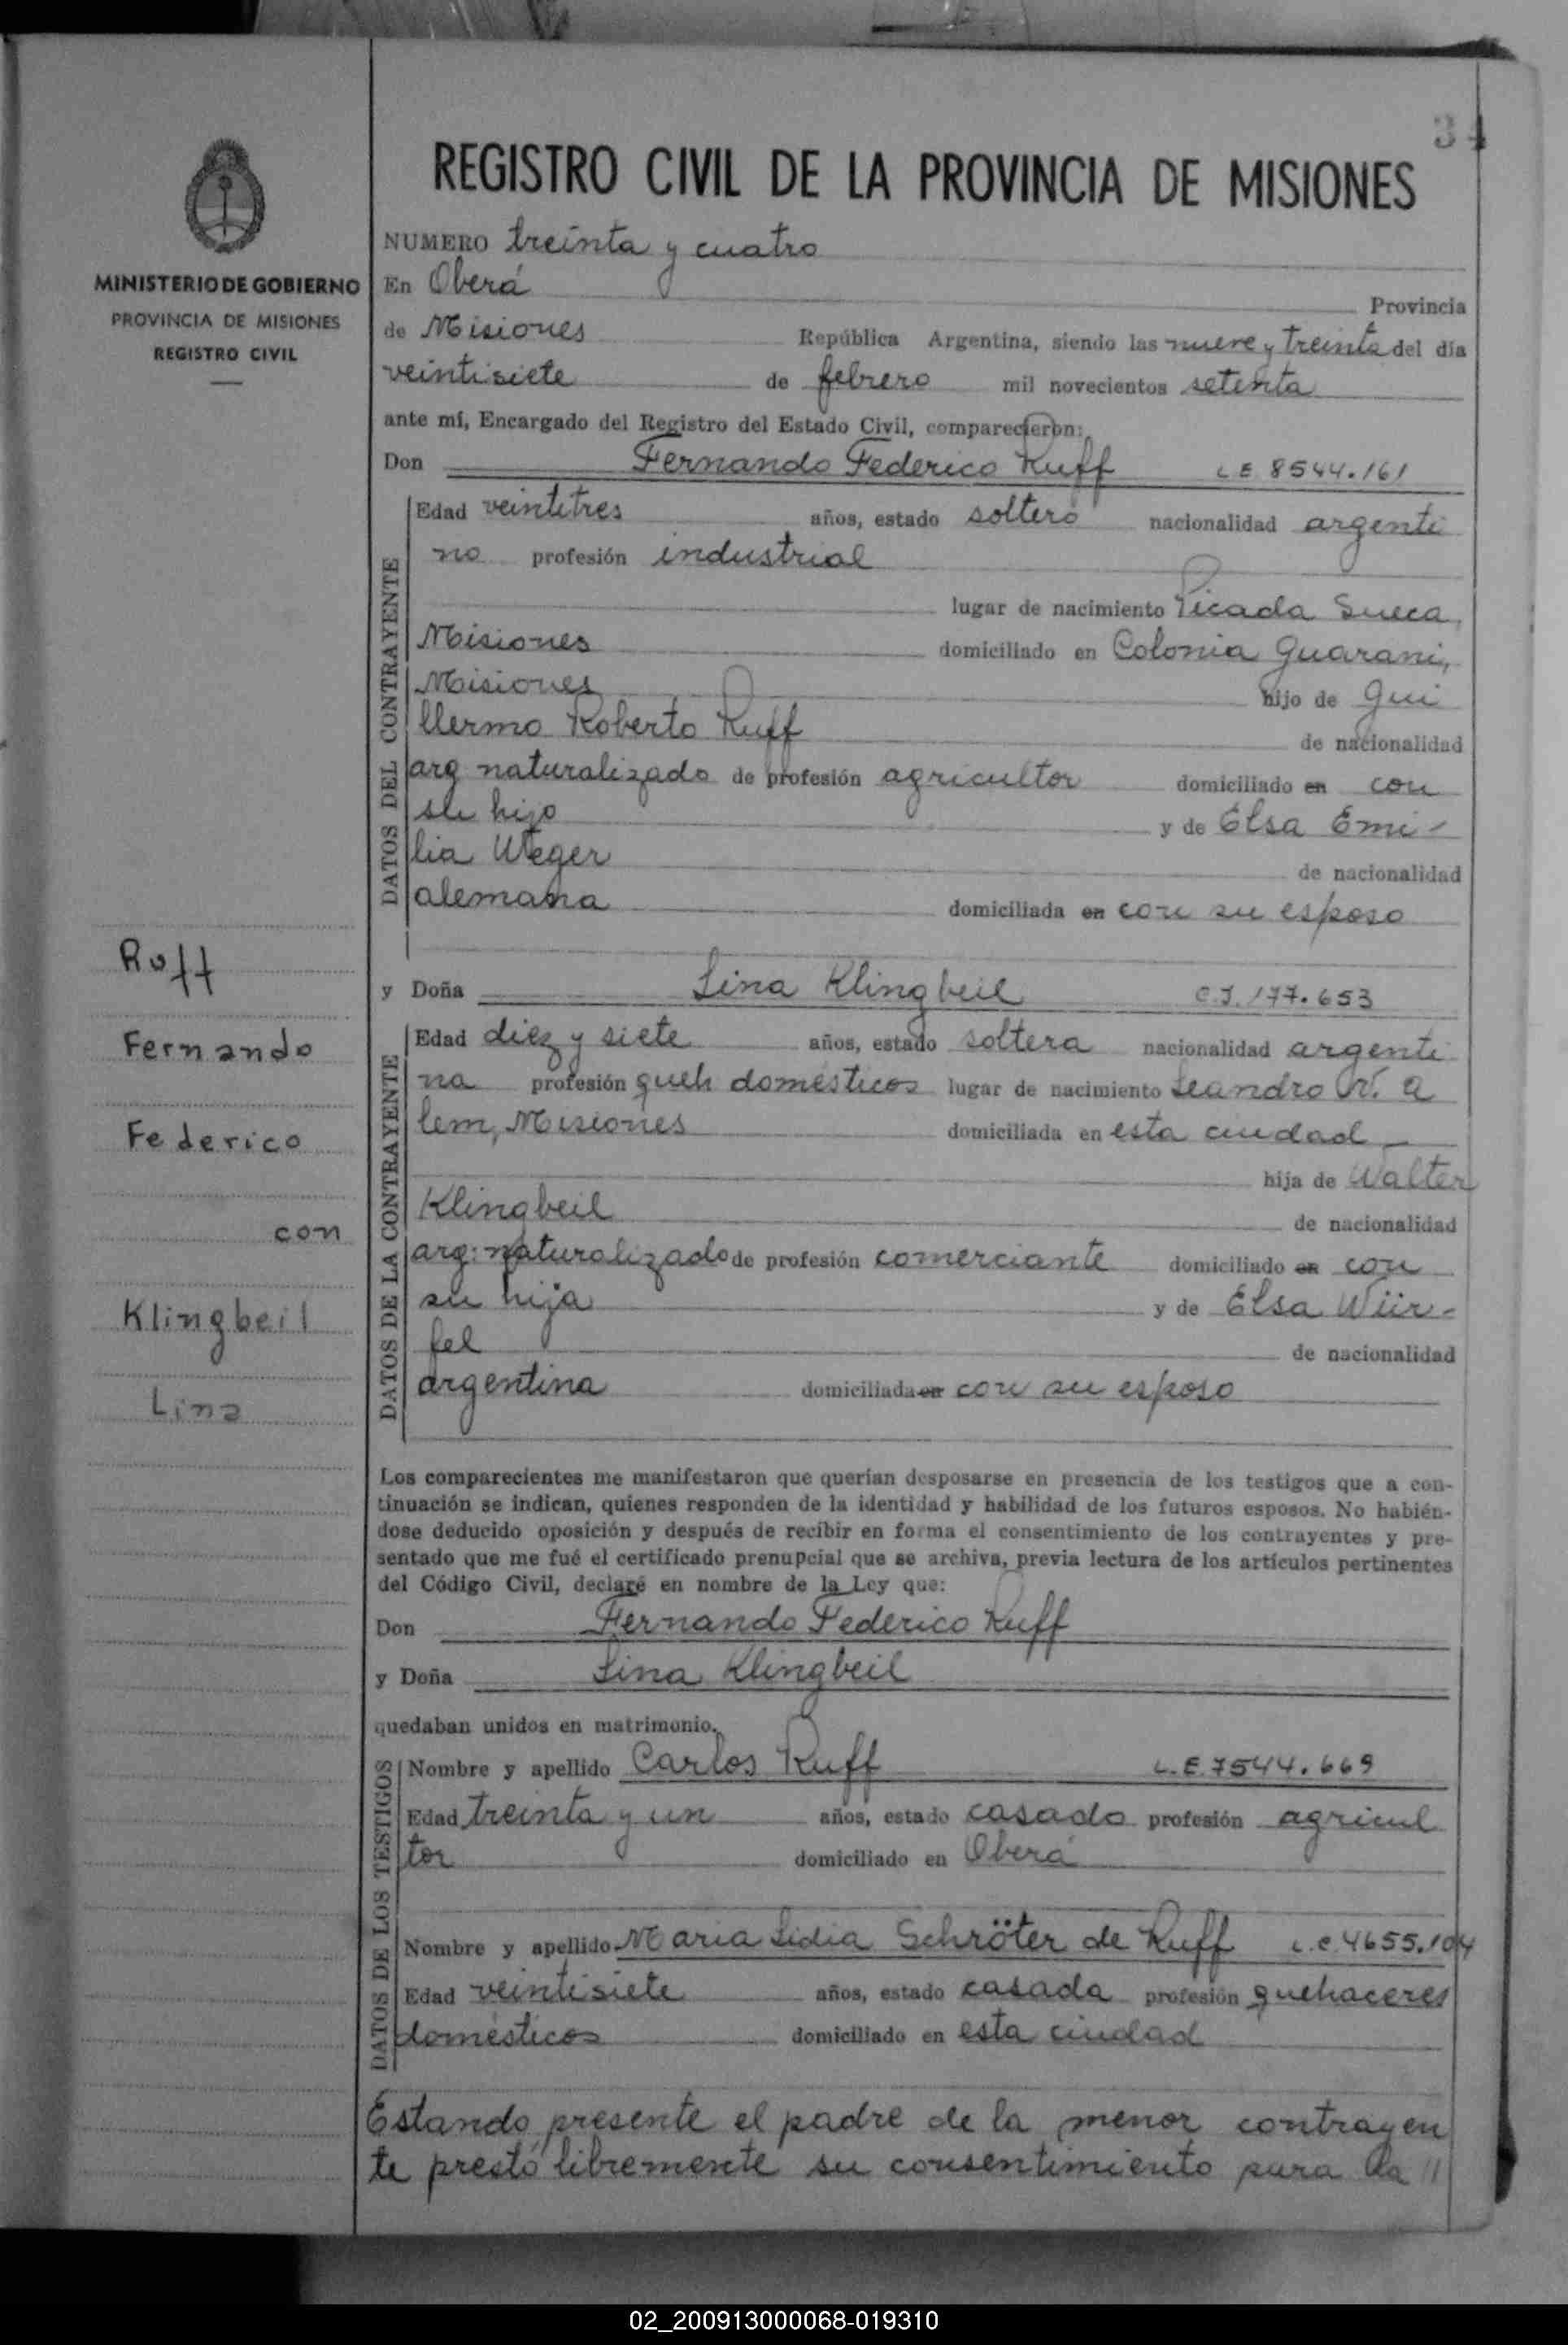 34
REGISTRO CIVIL DE LA PROVINCIA DE MISIONES
MINISTERIO DE GOBIERNO
PROVINCIA DE MISIONES
REGISTRO CIVIL
NUMERO treinta y cuatro
En Oberá Provincia
de Misiones República Argentina, siendo las nueve y treinta del día
veintisiete de febrero mil novecientos setenta
ante mí, Encargado del Registro del Estado Civil, comparecieron:
Don Fernando Federico Ruff L E 8544.161
DATOS DEL CONTRAYENTE
Edad veintitres años, estado soltero nacionalidad argenti
no profesión industrial
lugar de nacimiento Picada Sueca,
Misiones domiciliado en Colonia Guarani,
Misiones hijo de Gui
llermo Roberto Ruff de nacionalidad
arg naturalizado de profesión agricultor domiciliado en con
su hijo y de Elsa Emi-
lia Weger de nacionalidad
alemana domiciliada en con su esposo
y Doña Lina Klingbeil C.I. 177.653
DATOS DE LA CONTRAYENTE
Edad diez y siete años, estado soltera nacionalidad argenti
na profesión queh domésticos lugar de nacimiento Leandro N. A
lem, Misiones domiciliada en esta ciudad
hija de Walter
Klingbeil de nacionalidad
arg: naturalizado de profesión comerciante domiciliado en con
su hija y de Elsa Wür-
fel de nacionalidad
argentina domiciliada en con su esposo
Los comparecientes me manifestaron que querían desposarse en presencia de los testigos que a con-
tinuación se indican, quienes responden de la identidad y habilidad de los futuros esposos. No habién-
dose deducido oposición y después de recibir en forma el consentimiento de los contrayentes y pre-
sentado que me fué el certificado prenupcial que se archiva, previa lectura de los artículos pertinentes
del Código Civil, declaré en nombre de la Ley que:
Don Fernando Federico Ruff
y Doña Lina Klingbeil
quedaban unidos en matrimonio.
DATOS DE LOS TESTIGOS
Nombre y apellido Carlos Ruff L.E. 7544.669
Edad treinta y un años, estado casado profesión agricul
tor domiciliado en Oberá
Nombre y apellido Maria Lidia Schröter de Ruff L.C. 4655.104
Edad veintisiete años, estado casada profesión quehaceres
domésticos domiciliado en esta ciudad
Estando presente el padre de la menor contrayen
te prestó libremente su consentimiento para la //
Ruff
Fernando
Federico
con
Klingbeil
Lina
02_200913000068-019310